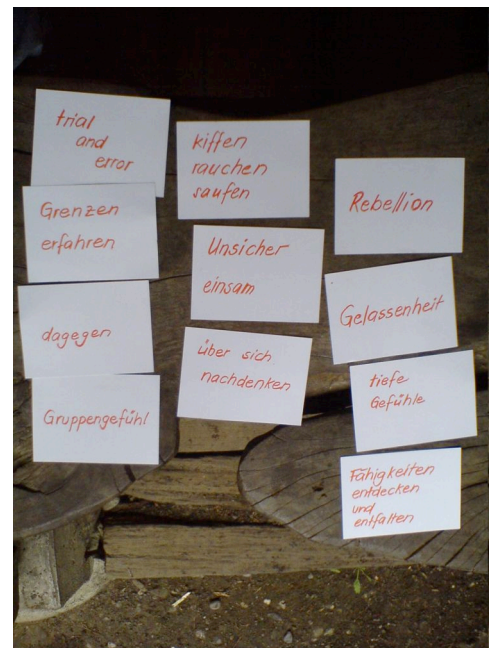 trial
and
error
Grenzen
erfahren
dagegen
Gruppengefühl
kiffen
rauchen
saufen
Unsicher
einsam
über sich
nachdenken
Rebellion
Gelassenheit
tiefe
Gefühle
Fähigkeiten
entdecken
und
entfalten